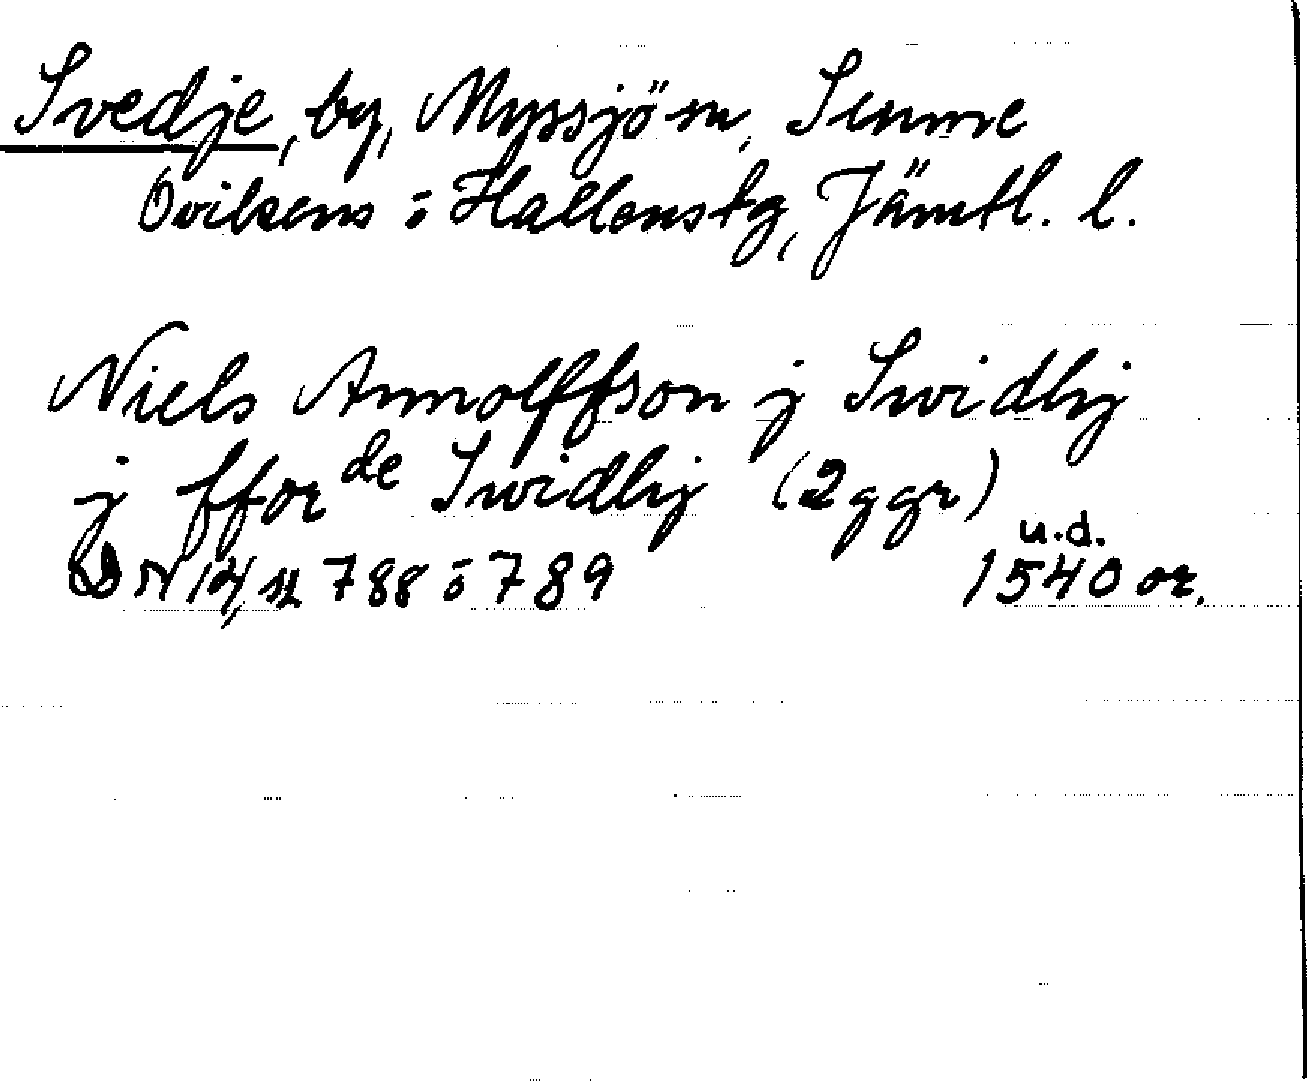 Svedje, by, Myssjö sn, Sunne
Ovikens o Hallens tg, Jämtl. l.
Niels Arnnolffson j Swidhij
j ffor de Swidhij (2 ggr)
DN 12, nr 788 o 789
u.d.
1540 or.